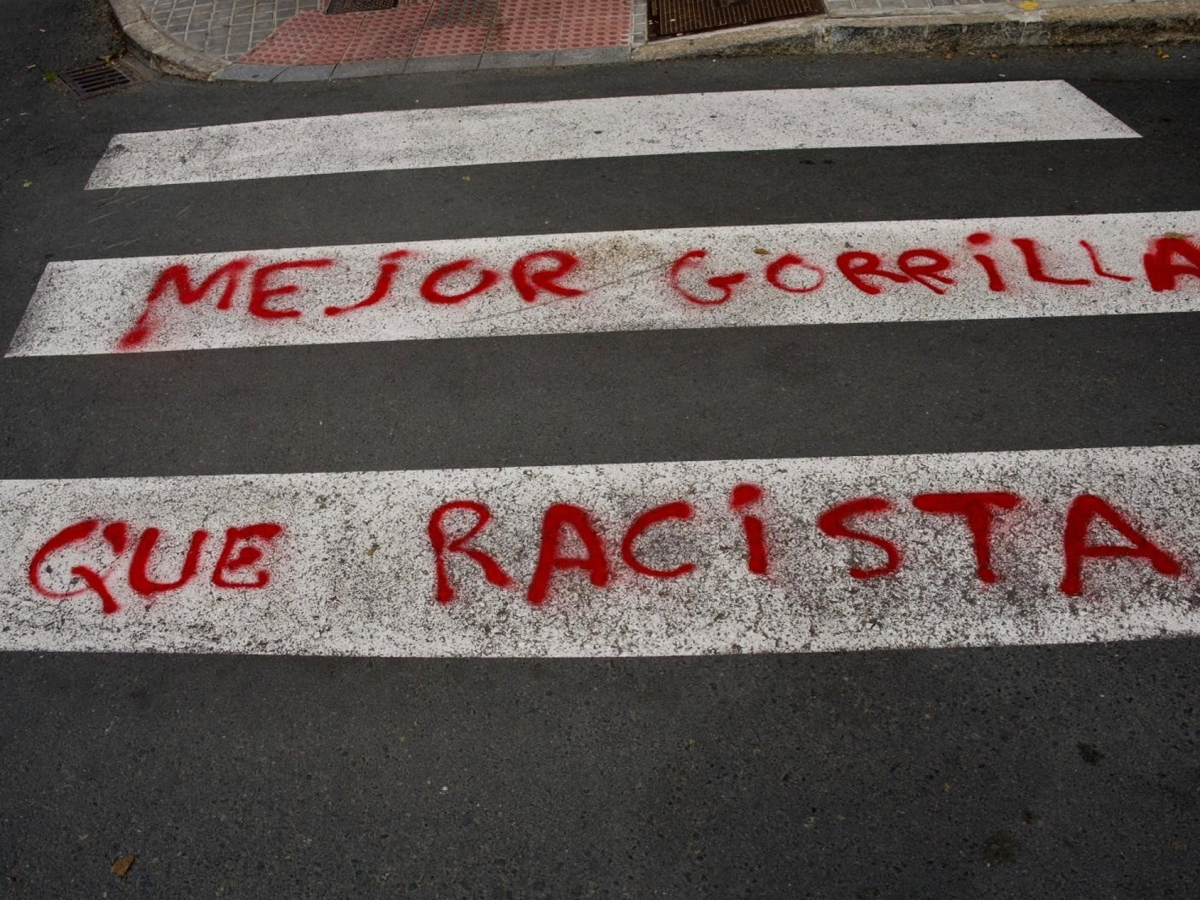 MEJOR GORRiLLA
QUE RACiSTA